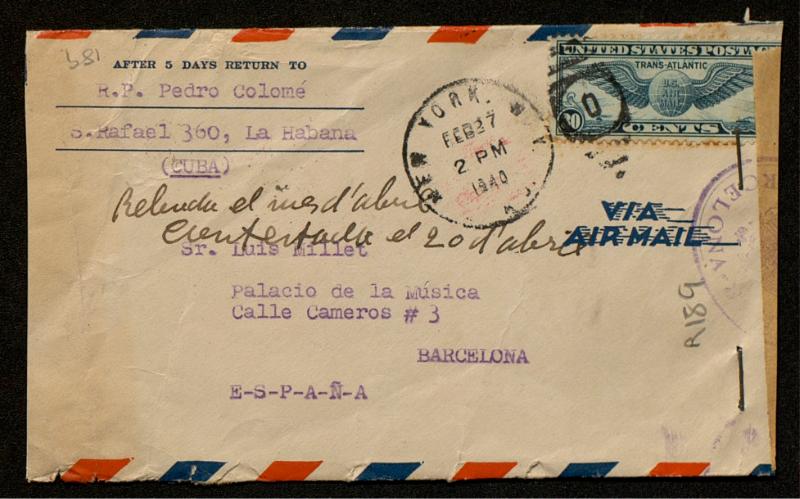 581
AFTER 5 DAYS RETURN TO
R.P. Pedro Colomé
S.Rafael 360, La Habana
(CUBA)
NEW YORK, N.Y.
FEB 27
2 PM
1940
UNITED STATES POSTAGE
TRANS-ATLANTIC
U.S.
AIR
MAIL
30
CENTS
VIA
AIR MAIL
Rebuda el mes d'abril
Contestada el 20 d'abril
Sr. Luis Millet
Palacio de la Música
Calle Cameros # 3
BARCELONA
E-S-P-A-Ñ-A
R189